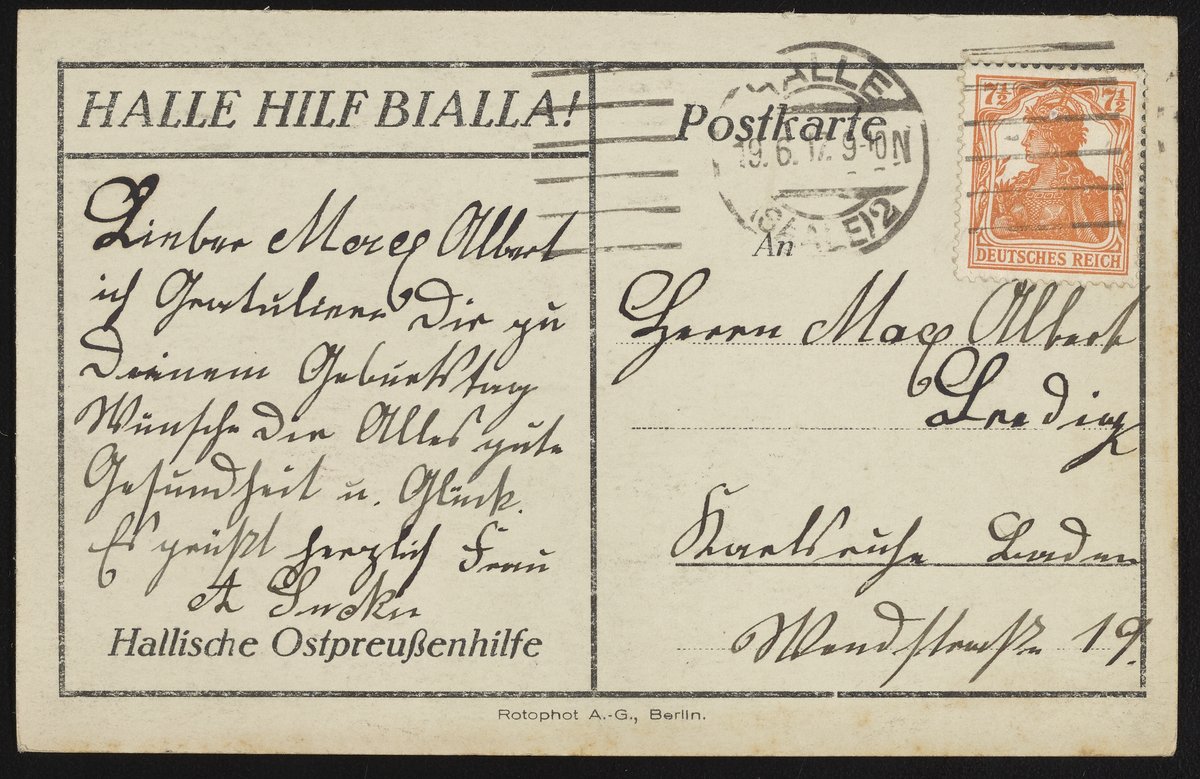 HALLE HILF BIALLA!
Lieber Max Albert
ich Gratuliere Dir zu
Deinem Geburtstag
Wünsche Dir Alles gute
Gesundheit u. Glück.
Es grüßt herzlich Frau
A
Hallische Ostpreußenhilfe
Postkarte
HALLE
19.6.17. 9-10N
(SAALE)2
7½ 7½
DEUTSCHES REICH
An
Herrn Max Albert
Ledig
Karlsruhe Baden
19.
Rotophot A.-G., Berlin.